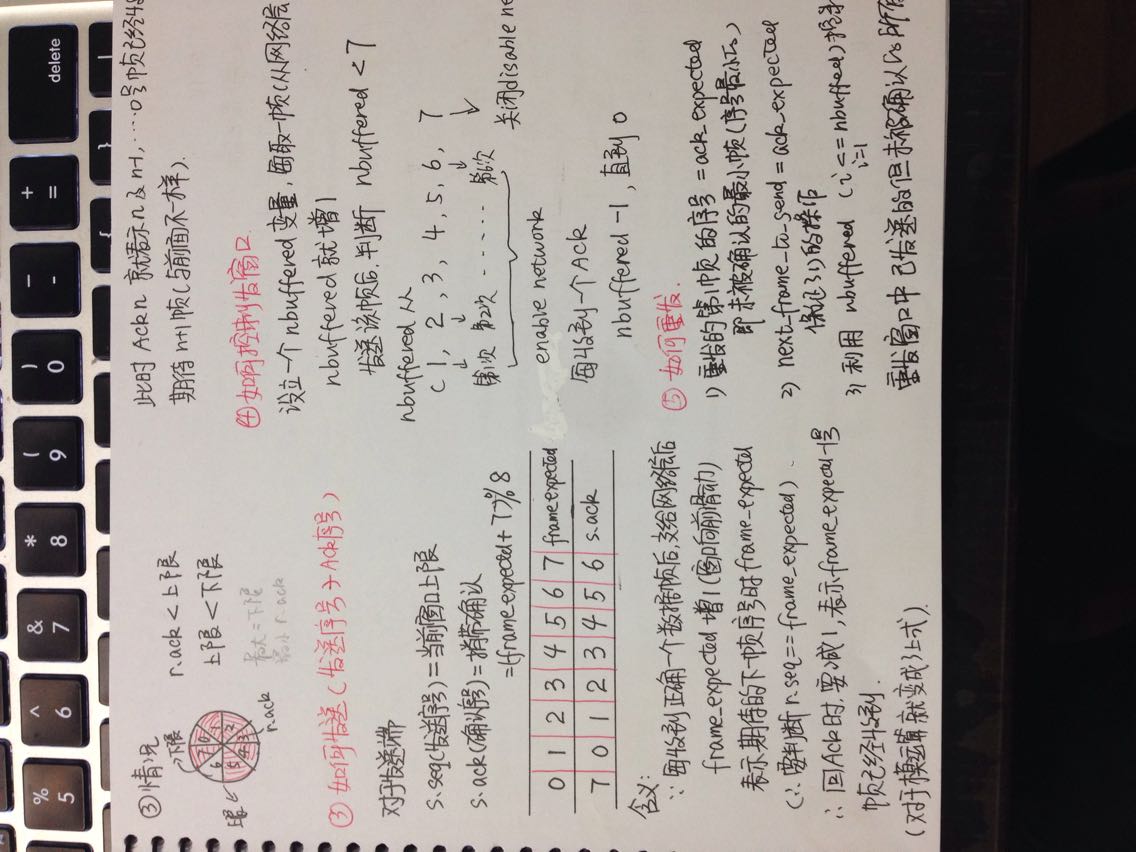 ③情况
下限
上限
0
1
2
3
4
5
6
7
r.ack
r.ack < 上限
上限 < 下限
最大=下限
最小 r.ack
③如何发送(发送序号+Ack序号)
对于发送端
s.seq(发送序号)=当前窗口上限
s.ack(确认序号)=捎带确认
=(frame_expected+7)%8
0 1 2 3 4 5 6 7 frame_expected
7 0 1 2 3 4 5 6 s.ack
含义:
∵每收到正确一个数据帧后,交给网络层后
frame_expected 增1(窗口向前滑动)
表示期待的下一帧序号时frame_expected
(∵要判断r.seq==frame_expected).
∴回Ack时,要减1,表示frame_expected-1号
帧已经收到.
(对于模运算就变成上式).
此时 Ack n 就表示 n & n-1, ……0号帧已经
期待 n+1 帧(与前面不一样).
④如何控制发窗口
设立一个 nbuffered 变量,每取一帧(从网络层
nbuffered 就增1
发送该帧后,判断 nbuffered < 7
nbuffered 从
(1, 2, 3, 4, 5, 6, 7
第1次 第2次 …… 第6次
关闭disable ne
enable network
每收到一个Ack
nbuffered -1,直到0
⑤如何重发.
1) 重发的第1帧的序号=ack_expected
即未被确认的最小帧(序号最小)
2) next_frame_to_send = ack_expected
保证3)的操作
3) 利用 nbuffered (i <= nbuffered)
i=1
重发窗口中已发送的但未被确认的所有
delete
+
=
-
)
0
(
9
*
8
&
7
^
6
%
5
}
{